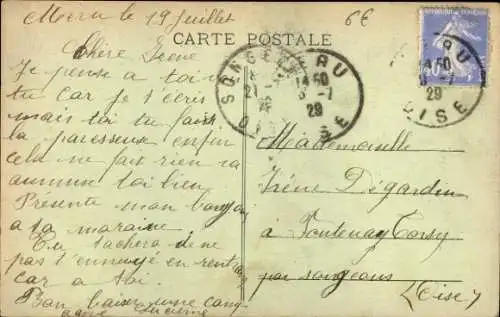 Meru le 19 Juillet
6€
CARTE POSTALE
Chère Irène
Je pense a toi
tu car je t'écris
mais toi tu fais
la paresseuse enfin
cela ne fait rien
aumun toi bien
Presente mon bonjour
a ta maraine
Tu tachera de ne
pas t'ennuyé en rent
car a toi
Bon baiser une
Lucienne
SONGEONS
OISE
29
OISE
29
Mademoiselle
Irène Dégardin
à Fontenay Torcy
par songeons
(Oise)